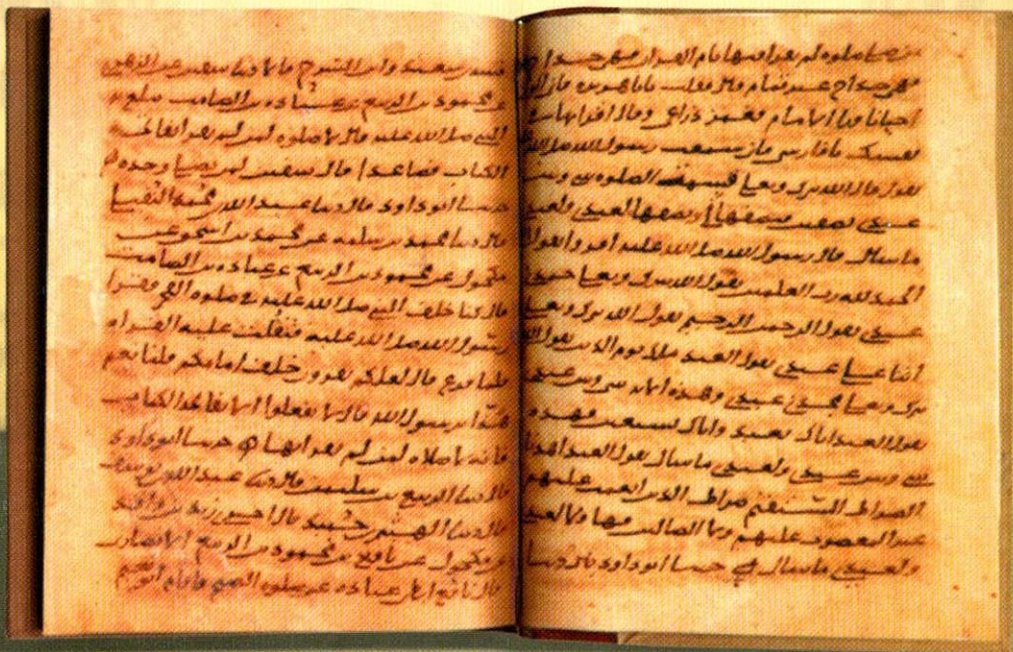 من صلى صلوة لم يقرا فيها بام القران فهي خداج
فهي خداج غير تمام قال فقلت يابا هريرة فاني اكون
احيانا ورا الامام فغمز ذراعي وقال اقرا بها
نفسك يا فارسي فاني سمعت رسول الله صلى الله
يقول قال الله تبرك وتعلى قسمت الصلوة بيني وبين
عبدي نصفين فنصفها لي ونصفها لعبدي ولعبدي
ما سال قال رسول الله صلى الله عليه اقروا يقول
الحمد لله رب العلمين يقول الله تبرك وتعلى حمدني
عبدي يقول الرحمن الرحيم يقول الله تبرك وتعلى
اثنا علي عبدي يقول العبد ملك يوم الدين يقول الله
تبرك وتعلى مجدني عبدي وهذه الاية بيني وبين عبدي
يقول العبد اياك نعبد واياك نستعين فهذه
بيني وبين عبدي ولعبدي ما سال يقول العبد اهدنا
الصراط المستقيم صراط الذين انعمت عليهم
غير المغضوب عليهم ولا الضالين فهاولا لعبدي
ولعبدي ما سال حدثنا ابو داود قال حدثنا
قتيبة بن سعيد وابن السرح قالا حدثنا سفين عن الزهري
عن محمود بن الربيع عن عبادة بن الصامت يبلغ به
النبي صلى الله عليه قال لا صلوة لمن لم يقرا بفاتحة
الكتاب فصاعدا قال سفين لمن يصلي وحده
حدثنا ابو داود قال حدثنا عبد الله بن محمد النفيلي
قال حدثنا محمد بن سلمة عن محمد بن اسحق عن
مكحول عن محمود بن الربيع عن عبادة بن الصامت
قال كنا خلف النبي صلى الله عليه في صلوة الفجر فقرا
رسول الله صلى الله عليه فثقلت عليه القراة
فلما فرغ قال لعلكم تقرون خلف امامكم قلنا نعم
هذا يا رسول الله قال لا تفعلوا الا بفاتحة الكتاب
فانه لا صلاة لمن لم يقرا بها حدثنا ابو داود
قال حدثنا الربيع بن سليمن قال حدثنا عبد الله بن يوسف
قال حدثنا الهيثم بن حميد قال اخبرني زيد بن واقد
عن مكحول عن نافع بن محمود بن الربيع الانصاري
قال نافع ابطا عبادة عن صلوة الصبح فاقام ابو نعيم